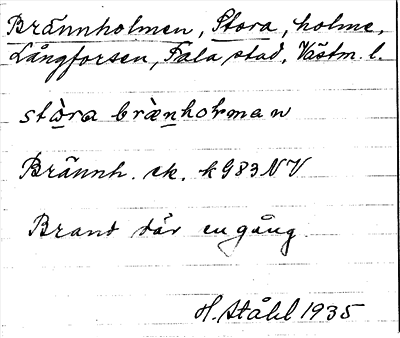 Brännholmen, Stora, holme,
Långforsen, Sala stad, Västm. l.
stòra bræ̀nholman
Brännh. ek. k G83NV
Brand där en gång
H. Ståhl 1935